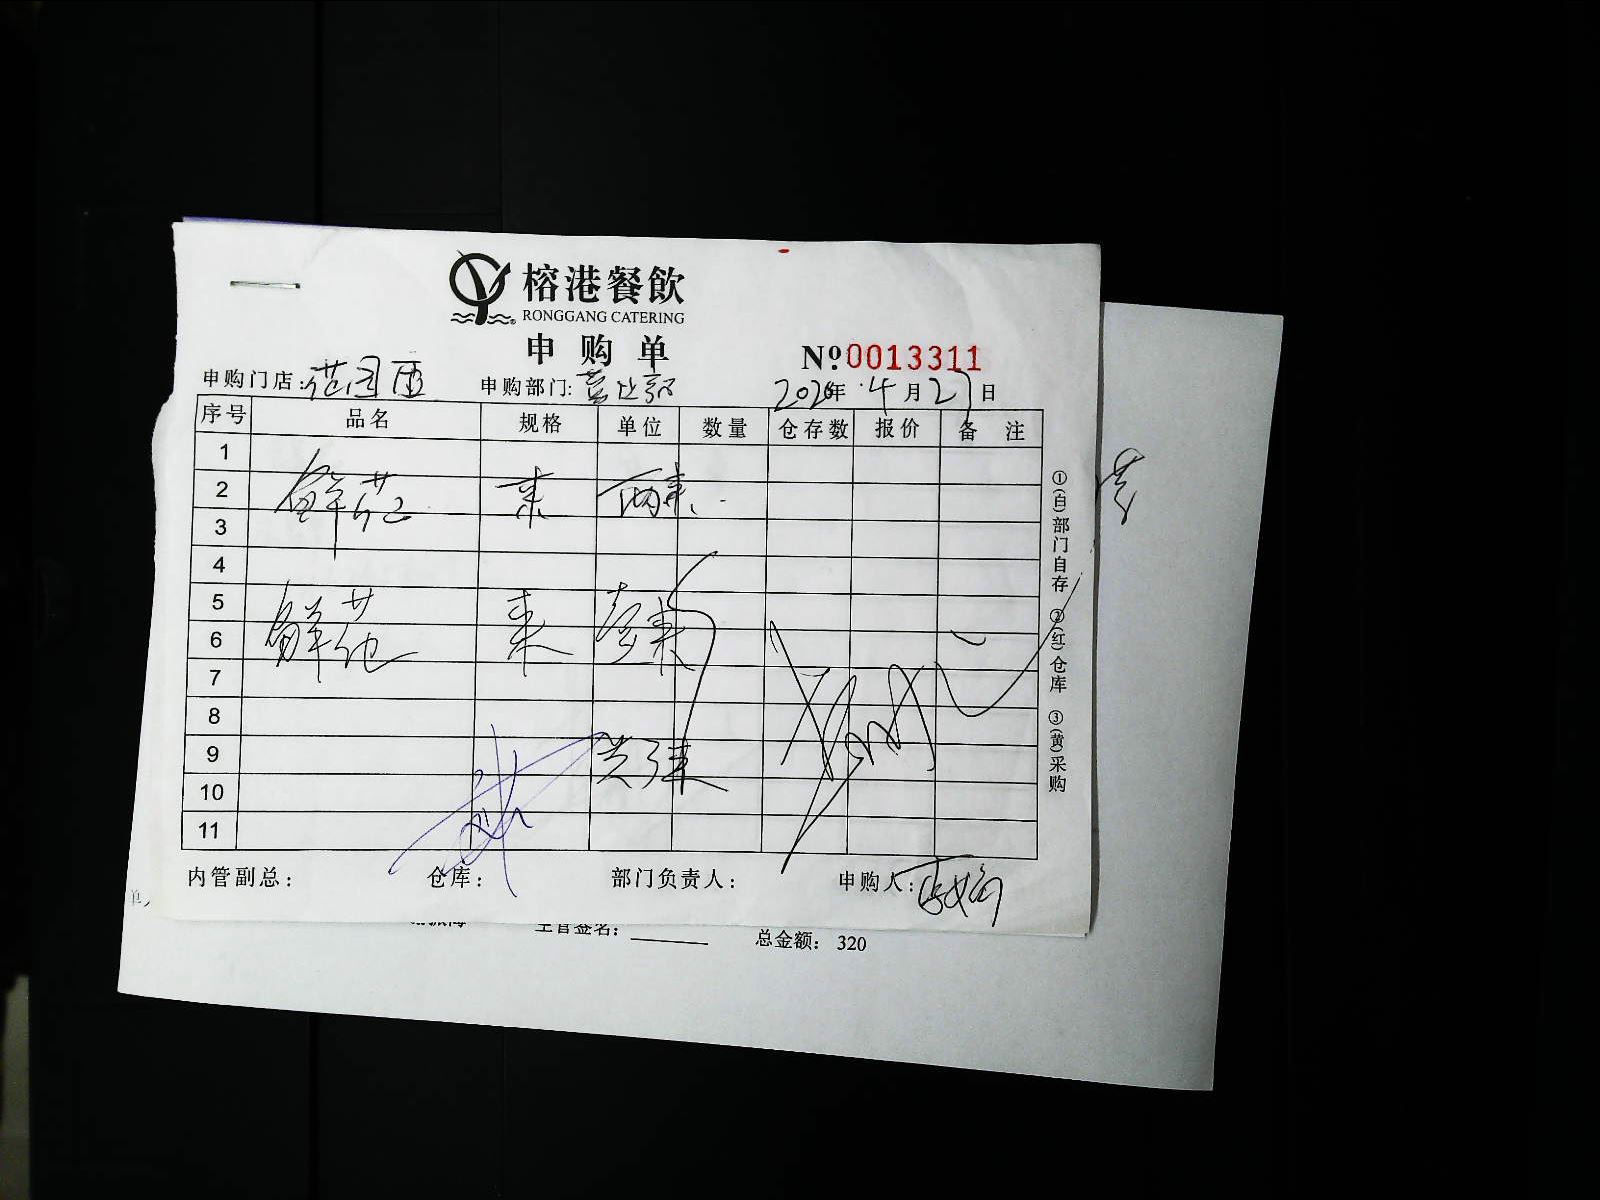 榕港餐飲
RONGGANG CATERING
申购单
№0013311
申购门店: 申购部门: 营业部 2020年4月27日
序号 品名 规格 单位 数量 仓存数 报价 备注
1
2 鲜花 束 两束
3
4
5
6 鲜花 束 壹束
7
8
9
10
11
①(白)部门自存 ②(红)仓库 ③(黄)采购
内管副总: 仓库: 部门负责人: 申购人:
主管签名: 总金额: 320